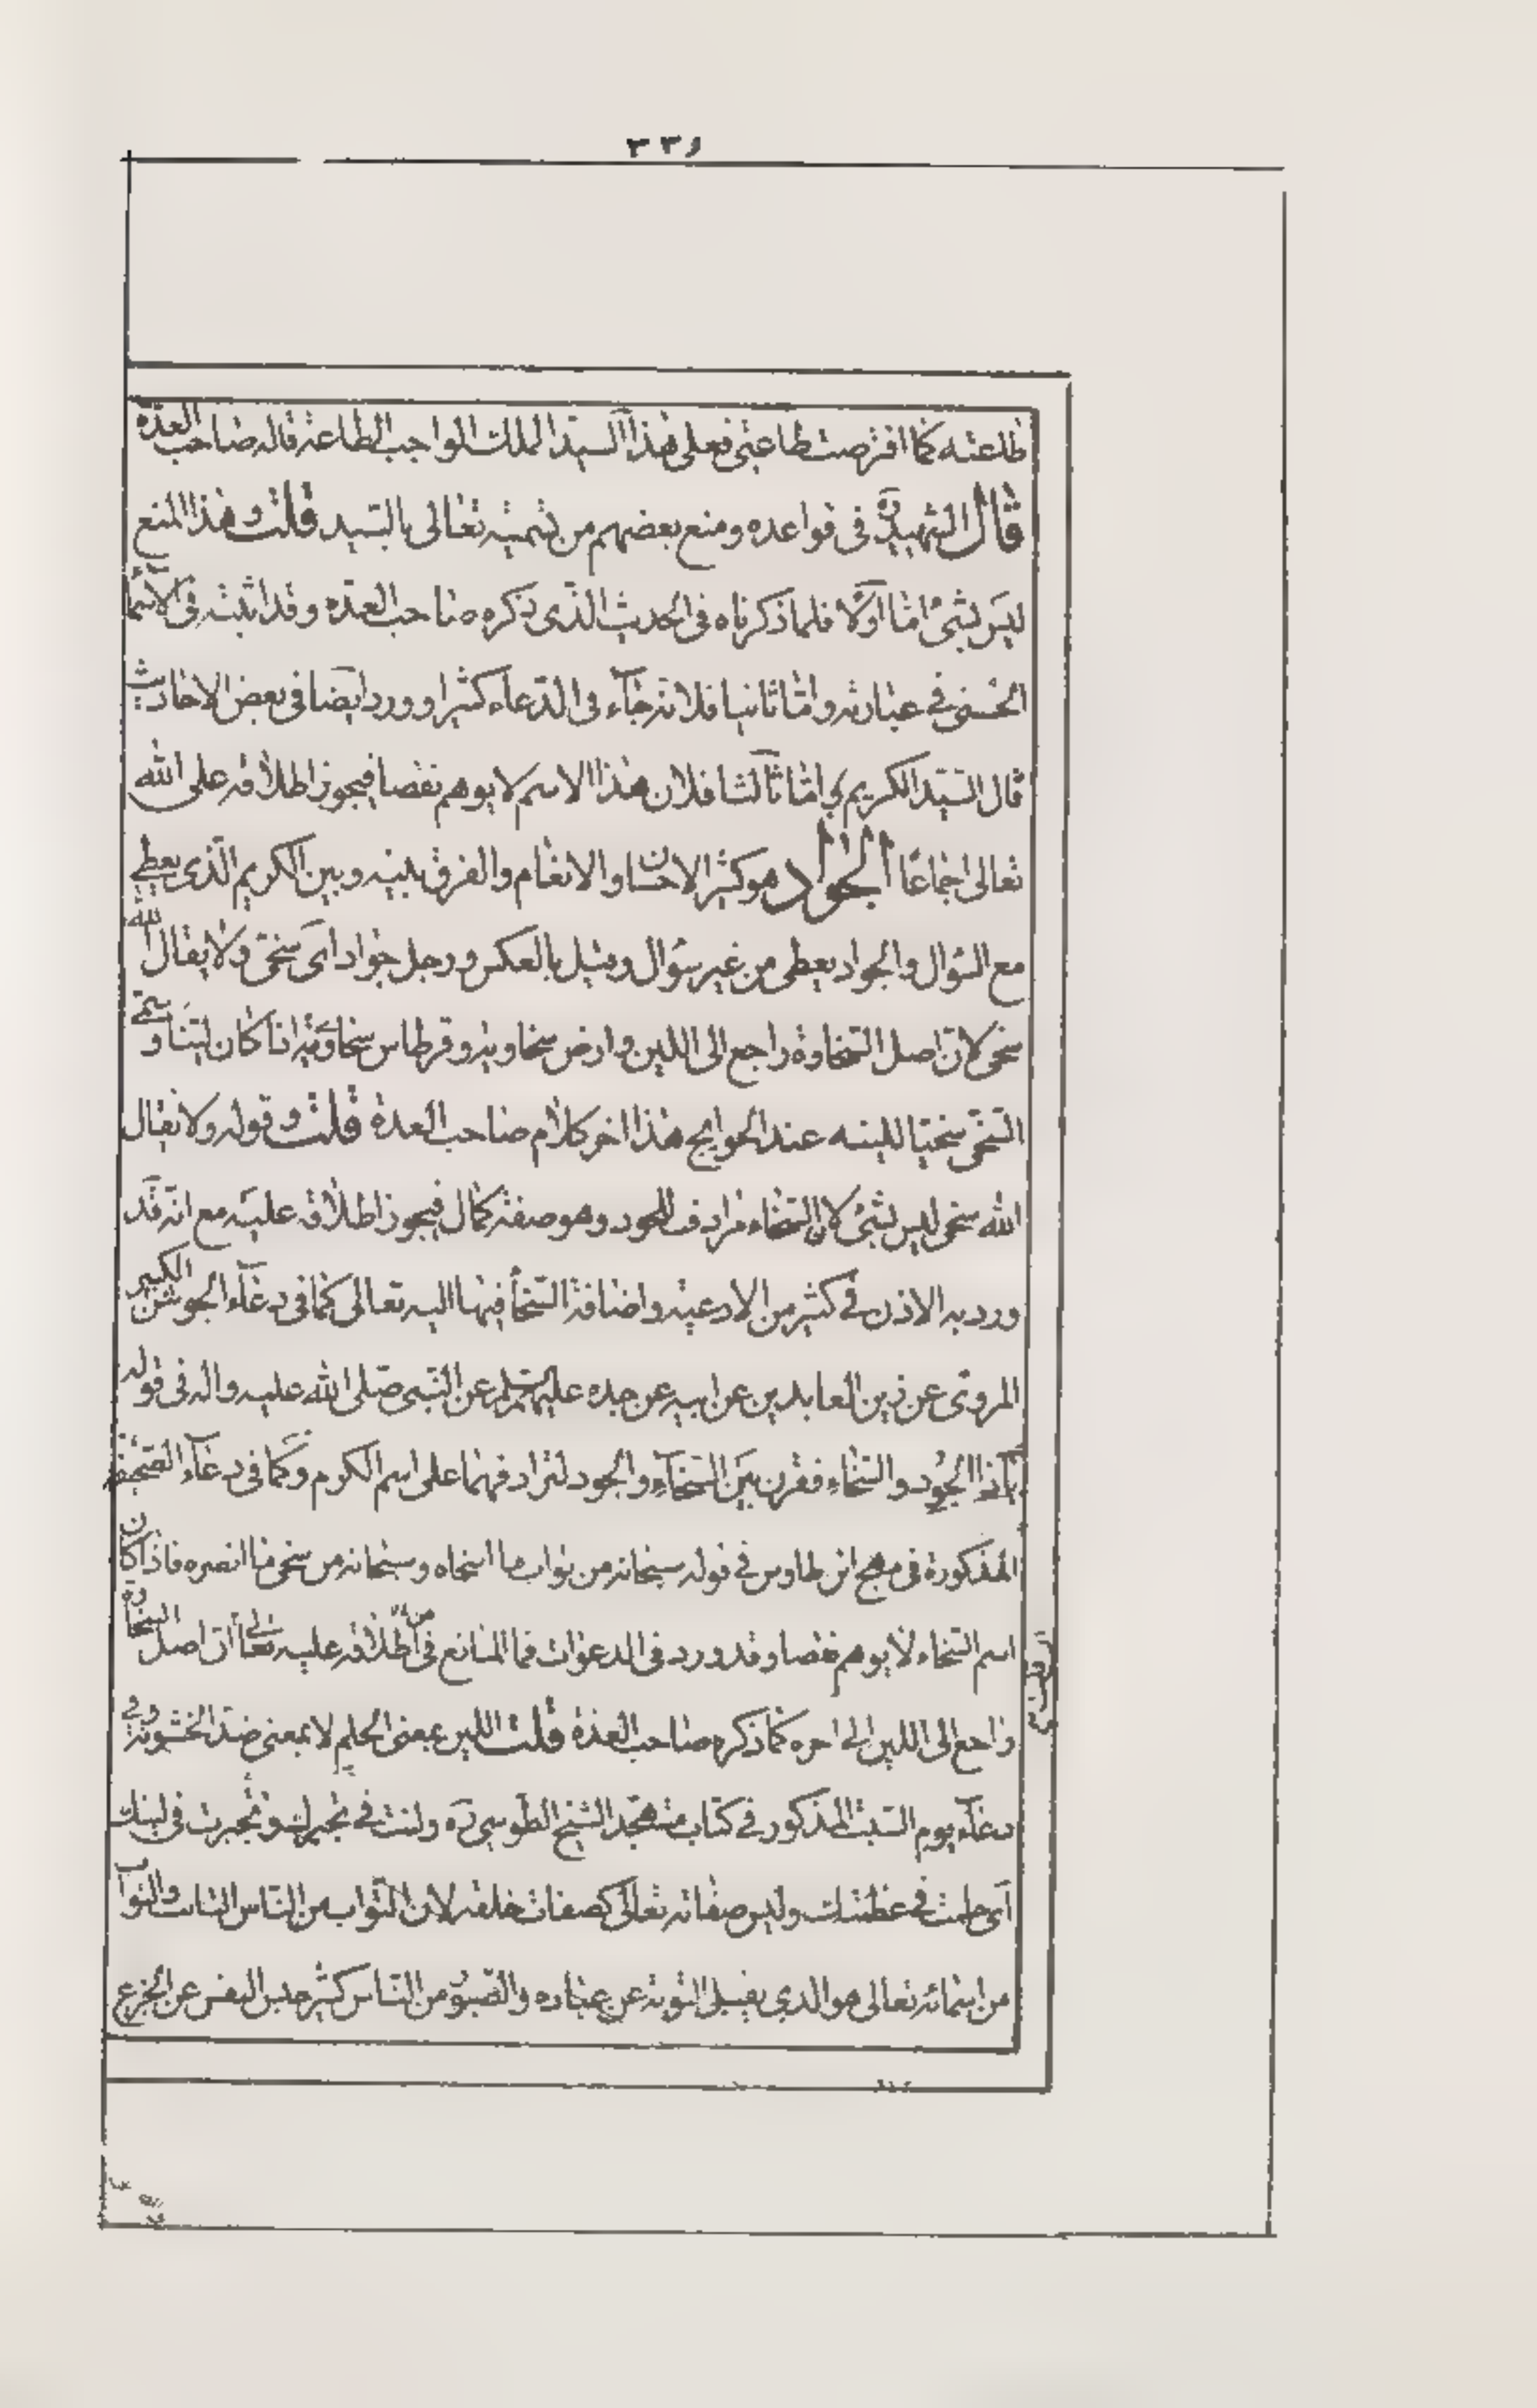 ٣٣١
طاعته كما افترضت طاعتى فعلى هذا السيد الملك الواجب الطاعة قاله صاحب العدة
قال الشهيد ره فى قواعده ومنع بعضهم من تسميته تعالى بالسيد قلت وهذا المنع
ليس بشئ اما اولا فلما ذكرناه فى الحديث الذى ذكره صاحب العدة وقد اثبته فى الاسماء
الحسنى فى عبارته واما ثانيا فلانه جاء فى الدعاء كثيرا وورد ايضا فى بعض الاحاديث
قال السيد الكريم واما ثالثا فلان هذا الاسم لا يوهم نقصا فيجوز اطلاقه على الله
تعالى اجماعا الجواد هو كثير الاحسان والانعام والفرق بينه وبين الكريم الذى يعطى
مع السؤال والجواد يعطى من غير سؤال وقيل بالعكس ورجل جواد اى سخى ولا يقال لله
سخى لان اصل السخاوة راجع الى اللين وارض سخاوية وقرطاس سخاوية اذا كان لينا وسمى
السخى سخيا للينه عند الحوايج هذا اخر كلام صاحب العدة قلت وقوله ولا يقال
الله سخى ليس بشئ لان السخاء مرادف للجود وهو صفة كمال فيجوز اطلاقه عليه مع انه قد
ورد به الاذن فى كثير من الادعية واضافة السخاء فيها اليه تعالى كما فى دعاء الجوشن الكبير
المروى عن زين العابدين عن ابيه عن جده عليهم السلام عن النبى صلى الله عليه واله فى قوله
يا ذا الجود والسخاء فقرن بين السخاء والجود لترادفهما على اسم الكرم وكما فى دعاء الصحيفة
المذكورة فى مهج ابن طاوس فى قوله سبحانه من تواب ما اسخاه وسبحانه من سخى ما انصره فاذا كان
اسم السخاء لا يوهم نقصا وقد ورد فى الدعوات فما المانع من اطلاقه عليه تعالى ان اصل السخاوة
راجع الى اللين الى اخره كما ذكره صاحب العدة قلت اللين بمعنى الحلم لا بمعنى ضد الخشونة وفى
دعاء يوم السبت المذكور فى كتاب متهجد الشيخ الطوسى ره ولنت فى تجبرك وتجبرت فى لينك
اى حلمت فى عظمتك وليس صفاته تعالى كصفات خلقه لان التواب من الناس التائب والتواب
من اسمائه تعالى هو الذى يقبل التوبة عن عباده والصبور من الناس كثير حبس النفس عن الجزع